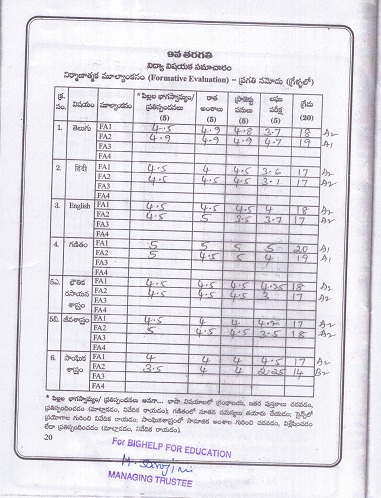 9వ తరగతి
విద్యా విషయక సమాచారం
నిర్మాణాత్మక మూల్యాంకనం (Formative Evaluation) – ప్రగతి నమోదు (గ్రేళ్ళలో)
క్ర. సం. విషయం మూల్యాంకనం * పిల్లల భాగస్వామ్యం/ ప్రతిస్పందనలు (5) రాత అంశాలు (5) ప్రాజెక్టు పనులు (5) లఘు పరీక్ష (5) గ్రేడు (20)
1. తెలుగు FA1 4.5 4.9 4.8 3.7 18 A2
FA2 4.9 4.9 4.9 4.7 19 A1
FA3
FA4
2. हिंदी FA1 4.5 4 4.5 3.6 17 A2
FA2 4.5 4.5 4.5 3.1 17 A2
FA3
FA4
3. English FA1 4.5 4.5 4.5 4 18 A2
FA2 4.5 5 3.5 3.7 17 A2
FA3
FA4
4. గణితం FA1 5 5 5 5 20 A1
FA2 5 4.5 5 4 19 A1
FA3
FA4
5ఎ. భౌతిక రసాయన శాస్త్రం FA1 4.5 4.5 4.5 4.25 18 A2
FA2 4.5 4.5 4.5 3 17 A2
FA3
FA4
5బి. జీవశాస్త్రం FA1 4.5 4 4.5 4.2 17 A2
FA2 5 4.5 4.5 3.5 18 A2
FA3
FA4
6. సాంఘిక శాస్త్రం FA1 4 4 4 4.5 17 A2
FA2 3.5 4 4 2.25 14 B2
FA3
FA4
* పిల్లల భాగస్వామ్యం/ ప్రతిస్పందనలు అనగా... భాషా విషయాలలో గ్రంథాలయ, ఇతర పుస్తకాలు చదవడం,
ప్రతిస్పందించడం (మాట్లాడడం, నివేదిక రాయడం); గణితంలో నూతన సమస్యలు తయారు చేయడం; సైన్స్‌లో
ప్రయోగాల గురించి నివేదిక రాయడం; సాంఘికశాస్త్రంలో సామాజిక అంశాల గురించి చదవడం, విశ్లేషించడం
లేదా ప్రతిస్పందించడం (మాట్లాడడం, నివేదిక రాయడం).
20
For BIGHELP FOR EDUCATION
M. Sarojini
MANAGING TRUSTEE